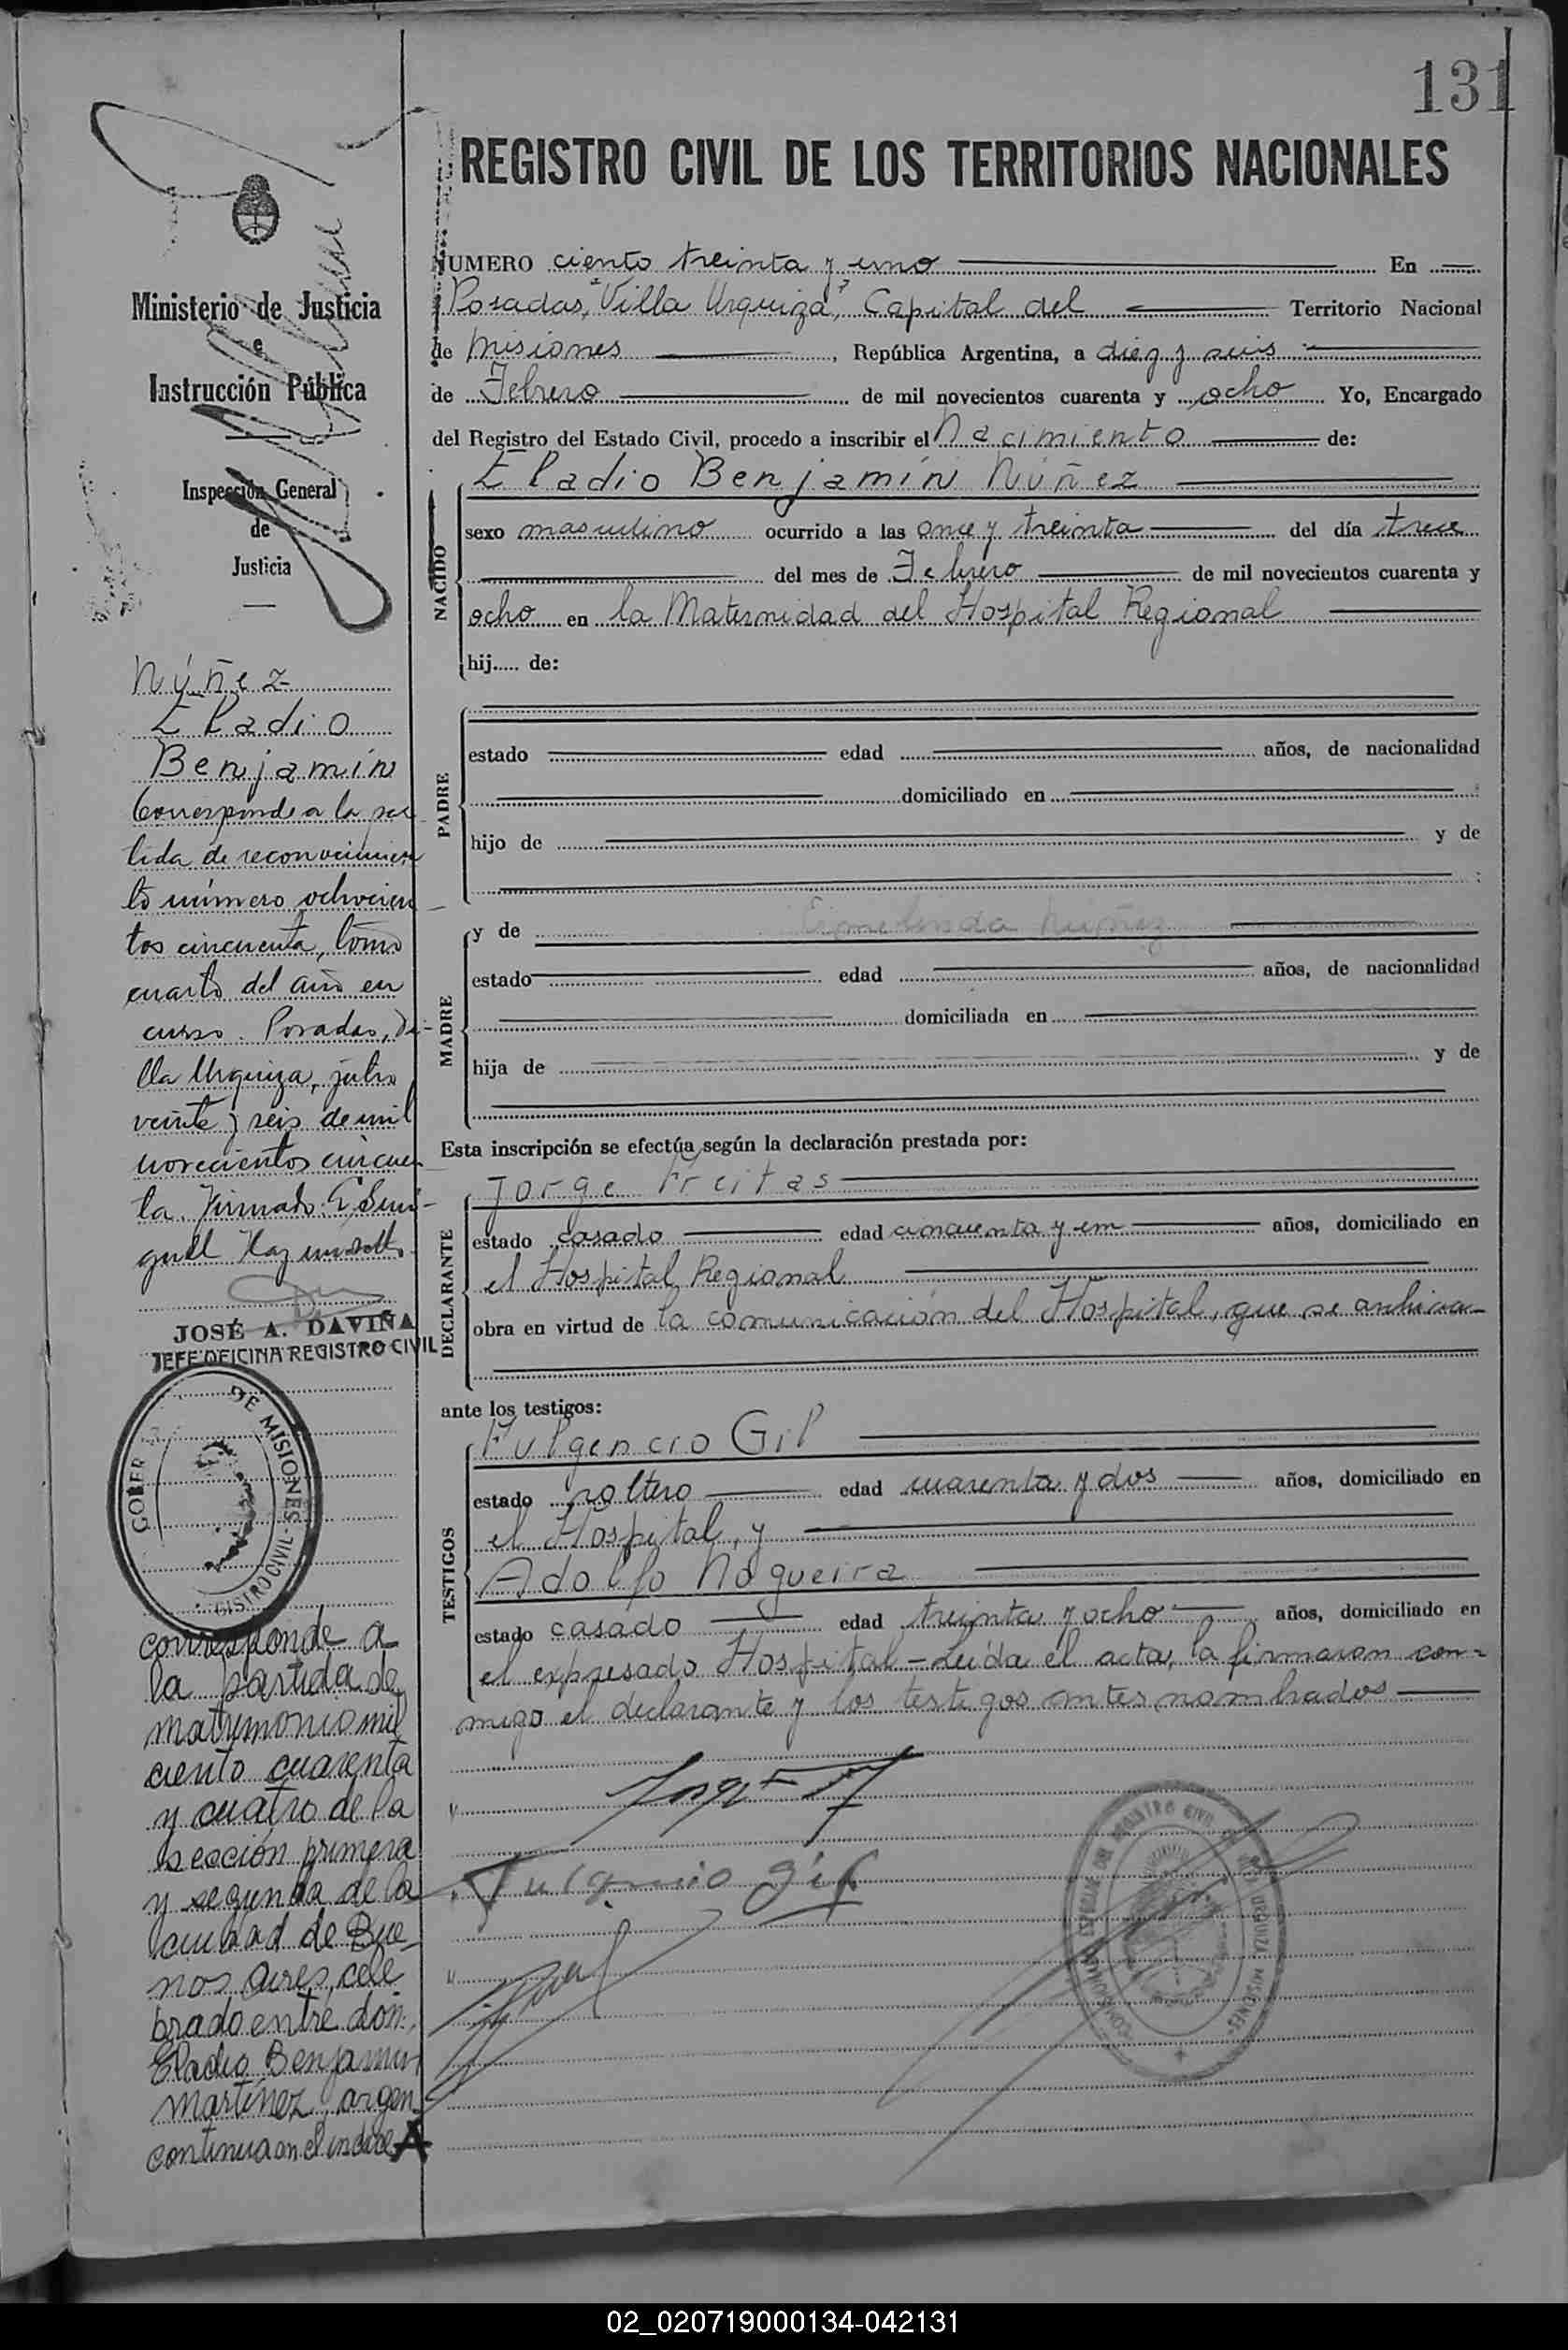 131
REGISTRO CIVIL DE LOS TERRITORIOS NACIONALES
Ministerio de Justicia
e
Instrucción Pública
Inspección General
de
Justicia
Núñez
Eladio
Benjamín
Corresponde a la par
tida de reconocimien
to número ochocien
tos cincuenta, tomo
cuarto del año en
curso. Posadas, Vi-
lla Urquiza, julio
veinte y seis de mil
novecientos cincuen
ta. Firmado:
JOSÉ A. DAVIÑA
JEFE OFICINA REGISTRO CIVIL
GOBER DE MISIONES - GISTRO CIVIL
corresponde a
la partida de
matrimonio mil
ciento cuarenta
y cuatro de la
sección primera
y segunda de la
ciudad de Bue_
nos aires, cele
brado entre don
Eladio Benjamin
Martínez, argen
continua en el indice A
NUMERO ciento treinta y uno En
Posadas, "Villa Urquiza", Capital del Territorio Nacional
de Misiones, República Argentina, a diez y seis
de Febrero de mil novecientos cuarenta y ocho Yo, Encargado
del Registro del Estado Civil, procedo a inscribir el Nacimiento de:
NACIDO
Eladio Benjamín Núñez
sexo masculino ocurrido a las once y treinta del día trece
del mes de Febrero de mil novecientos cuarenta y
ocho en la Maternidad del Hospital Regional
hij..... de:
PADRE
estado edad años, de nacionalidad
domiciliado en
hijo de y de
MADRE
y de Núñez
estado edad años, de nacionalidad
domiciliada en
hija de y de
Esta inscripción se efectúa según la declaración prestada por:
DECLARANTE
Jorge Freitas
estado casado edad cincuenta y un años, domiciliado en
el Hospital Regional
obra en virtud de la comunicación del Hospital, que se archiva
ante los testigos:
TESTIGOS
Fulgencio Gil
estado soltero edad cuarenta y dos años, domiciliado en
el Hospital, y
Adolfo Nogueira
estado casado edad treinta y ocho años, domiciliado en
el expresado Hospital - Leída el acta, la firmaron con-
migo el declarante y los testigos antes nombrados
Fulgencio Gil
02_020719000134-042131